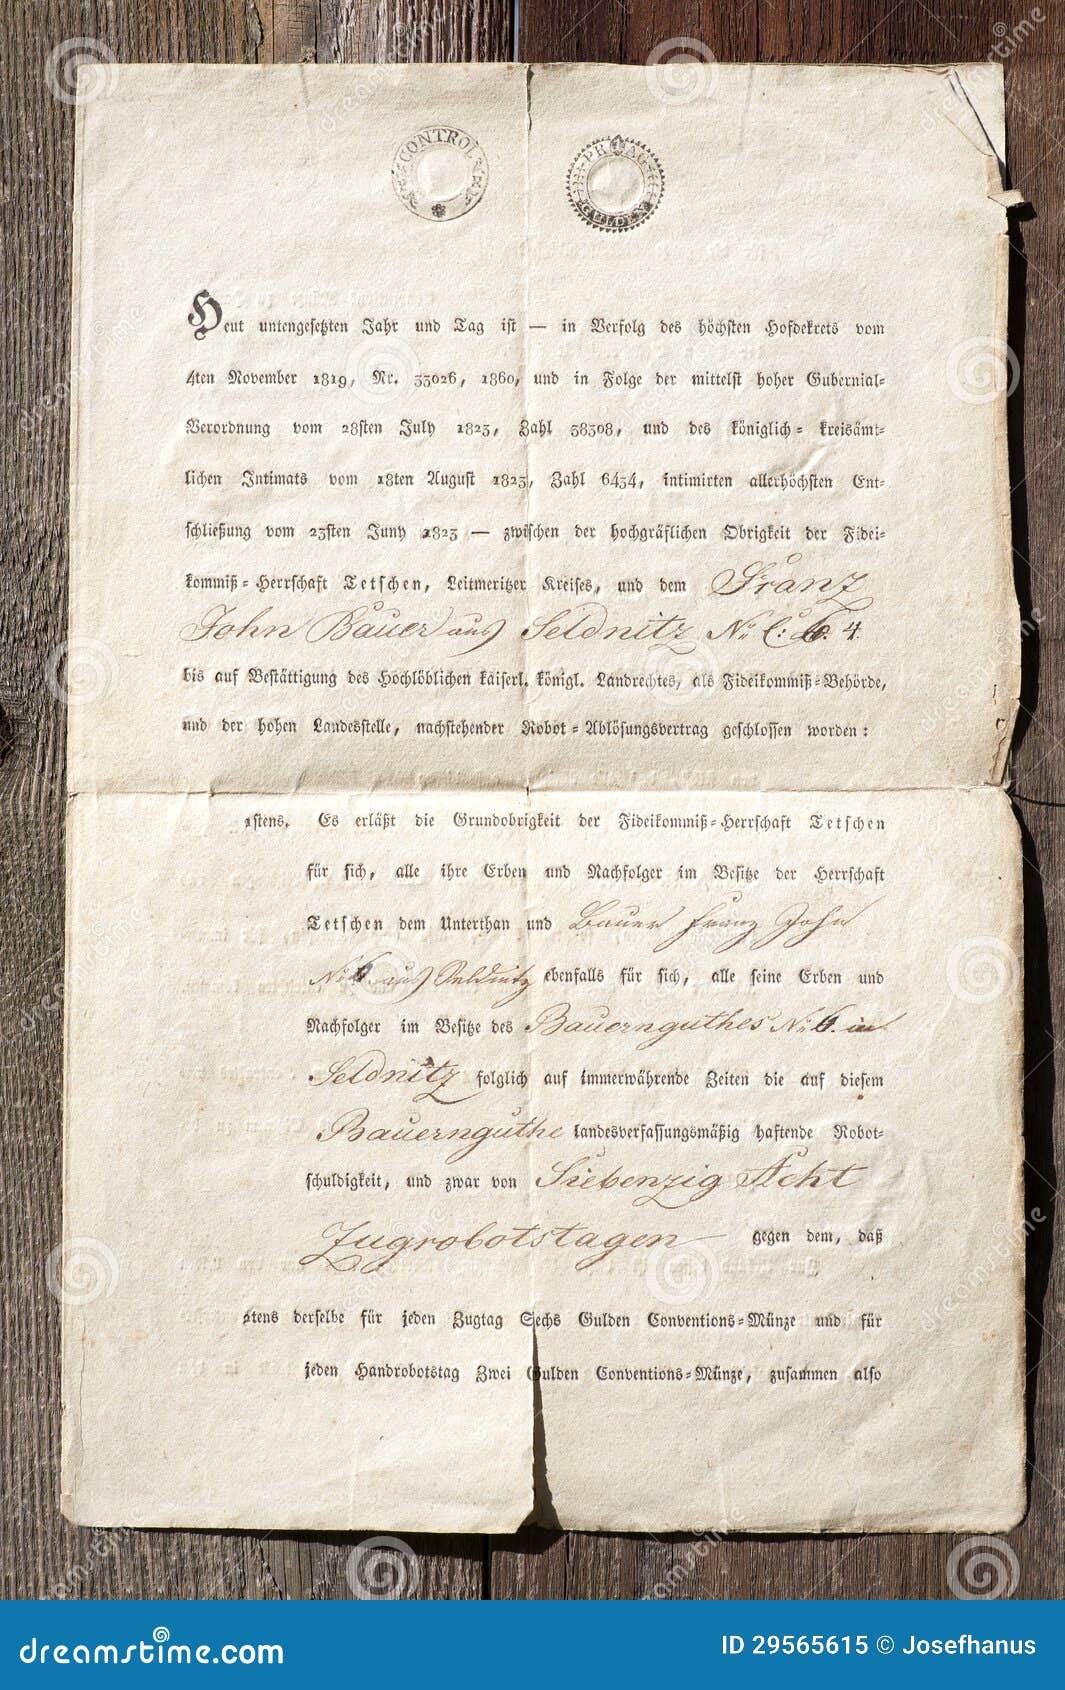 CONTROL
PRAG
Heut untengesetzten Jahr und Tag ist — in Verfolg des höchsten Hofdekrets vom
4ten November 1819, Nr. 33026, 1860, und in Folge der mittelst hoher Gubernial-
Verordnung vom 28sten July 1823, Zahl 38308, und des königlich-kreisämt-
lichen Intimats vom 18ten August 1823, Zahl 6434, intimirten allerhöchsten Ent-
schließung vom 23sten Juny 1823 — zwischen der hochgräflichen Obrigkeit der Fidei-
kommiß-Herrschaft Tetschen, Leitmeritzer Kreises, und dem Franz
John Bauer aus Seldnitz N: C: 6. 4.
bis auf Bestättigung des Hochlöblichen kaiserl. königl. Landrechtes, als Fideikommiß-Behörde,
und der hohen Landesstelle, nachstehender Robot-Ablösungsvertrag geschlossen worden:
1stens. Es erläßt die Grundobrigkeit der Fideikommiß-Herrschaft Tetschen
für sich, alle ihre Erben und Nachfolger im Besitze der Herrschaft
Tetschen dem Unterthan und Bauer Franz John
N: 6. aus Seldnitz ebenfalls für sich, alle seine Erben und
Nachfolger im Besitze des Bauernguthes N: 6. in
Seldnitz folglich auf immerwährende Zeiten die auf diesem
Bauernguthe landesverfassungsmäßig haftende Robot-
schuldigkeit, und zwar von Siebenzig Acht
Zugrobotstagen — gegen dem, daß
2tens derselbe für jeden Zugtag Sechs Gulden Conventions-Münze und für
jeden Handrobotstag Zwei Gulden Conventions-Münze, zusammen also
dreamstime.com
ID 29565615 © Josefhanus